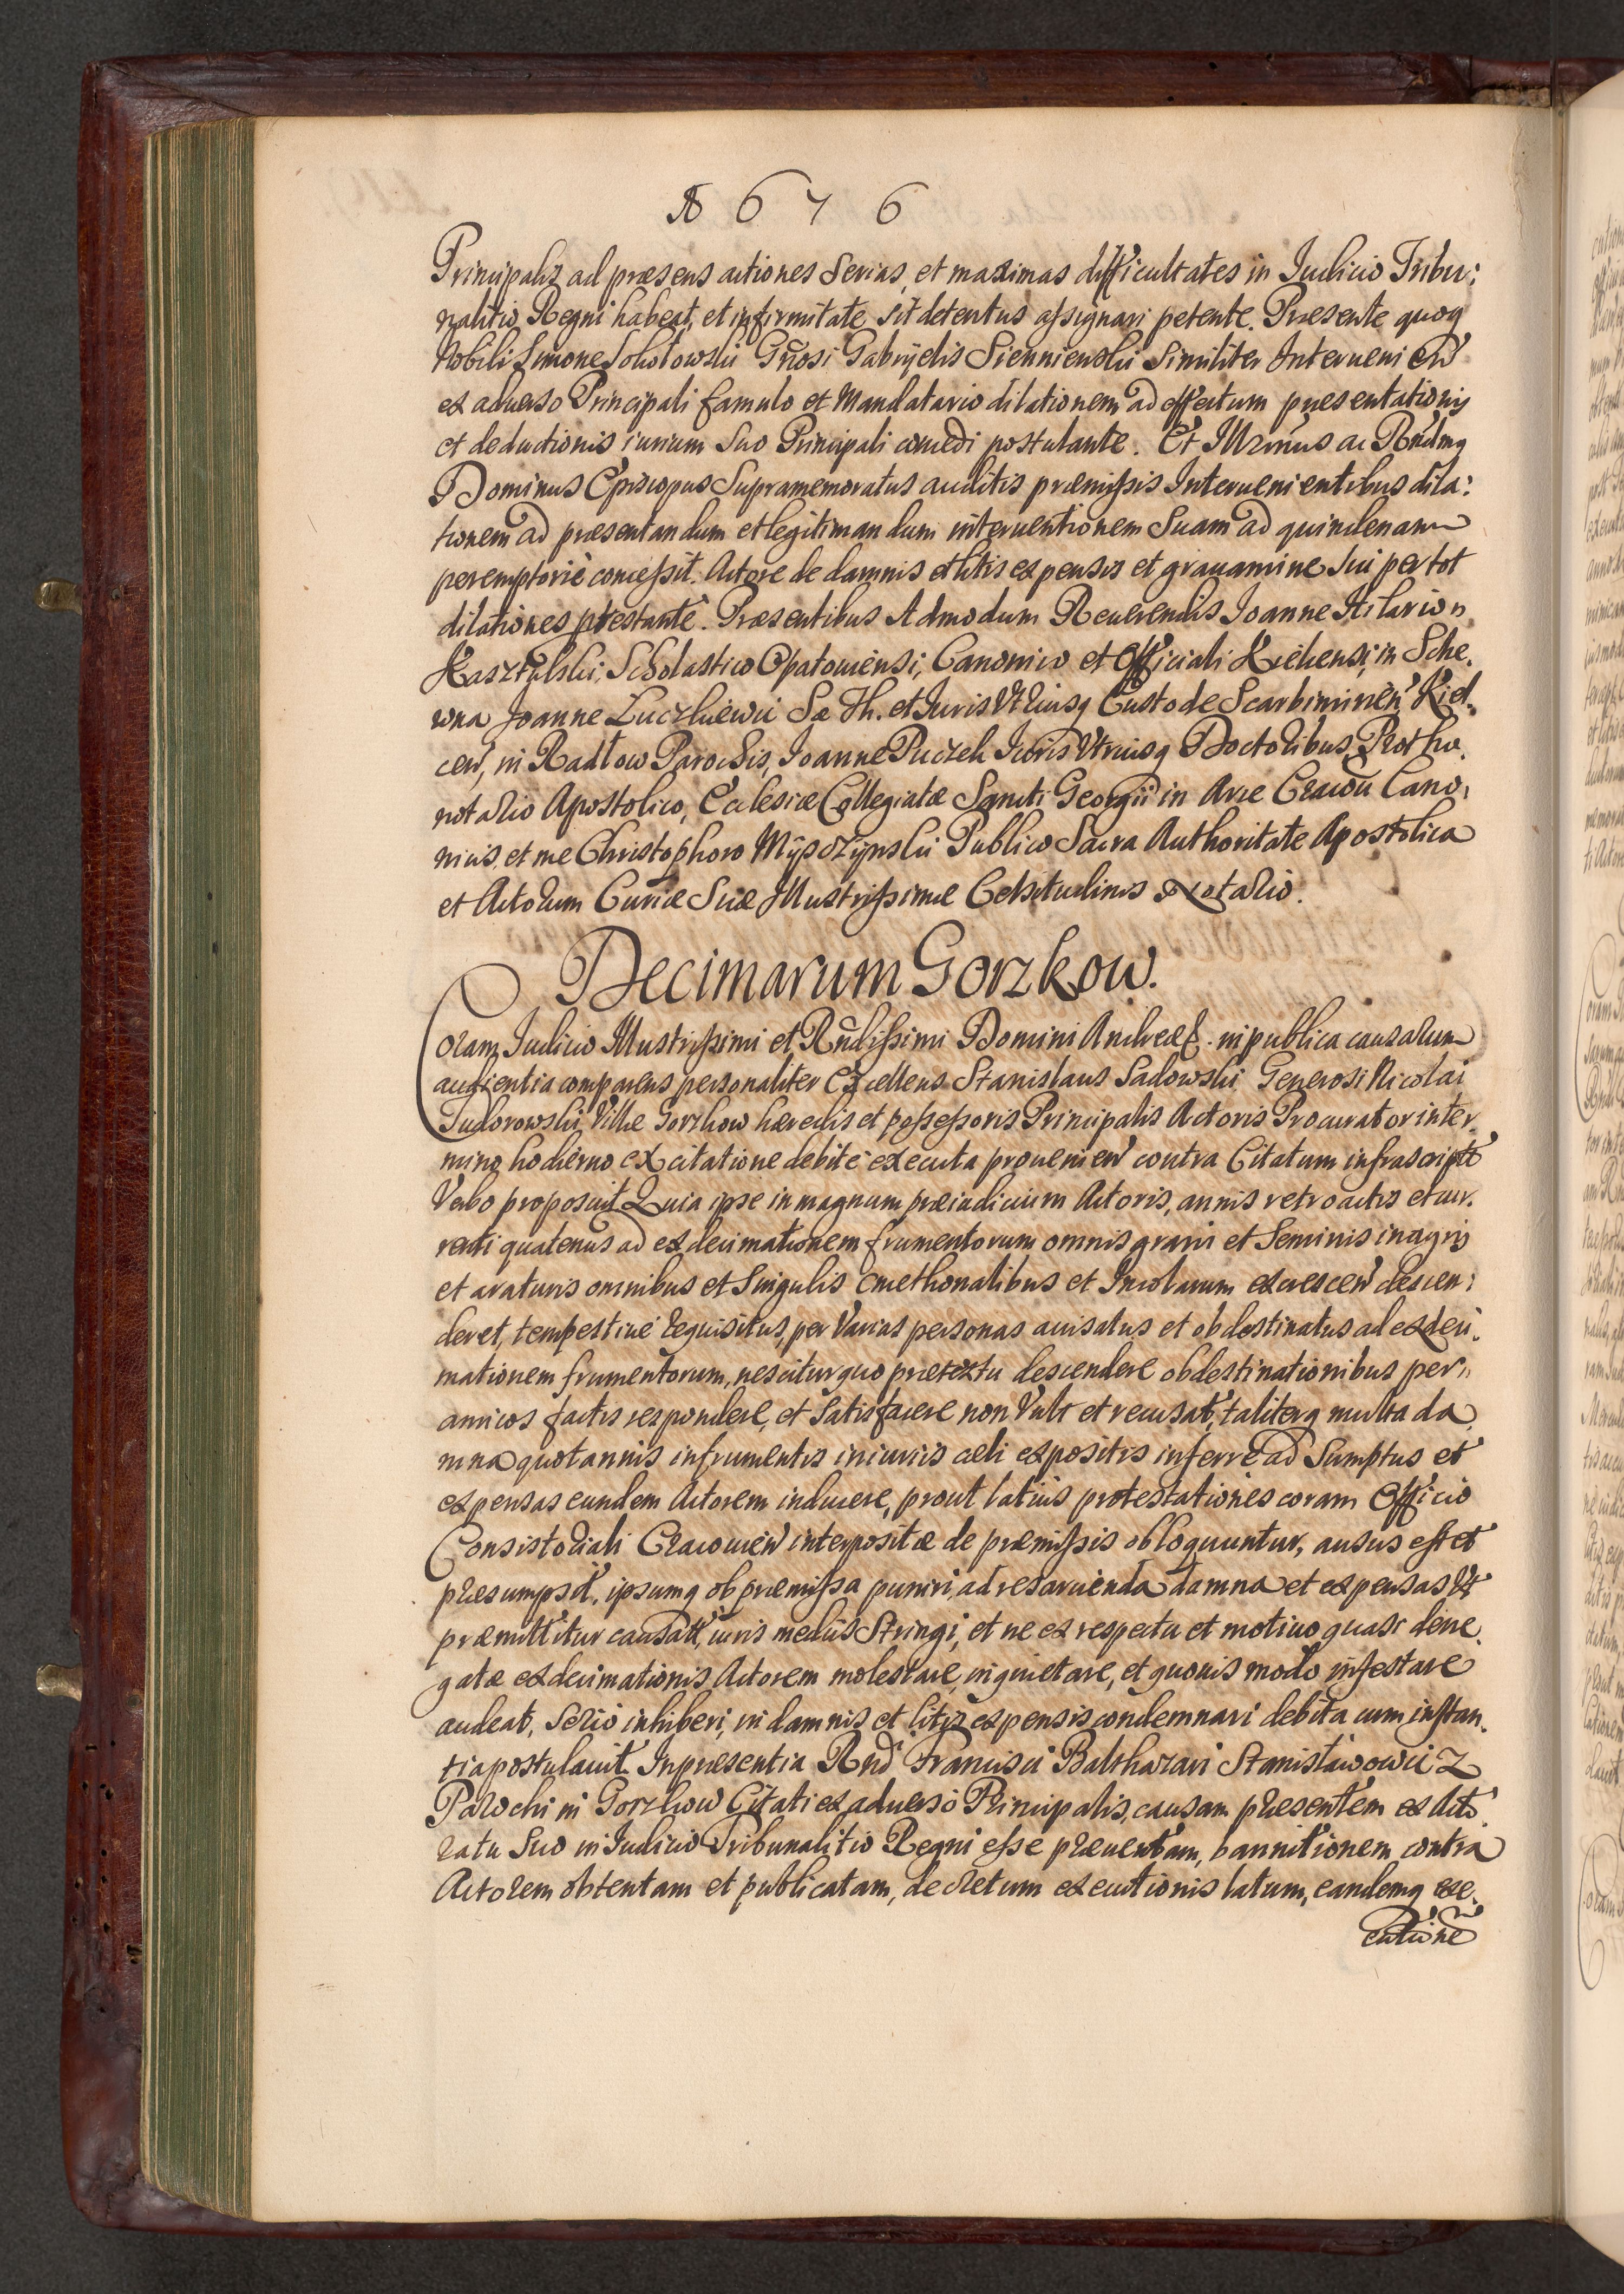 676
Principalis ad præsens actiones Serias, et maximas difficultates in Iudicio Tribu:
nalitio Regni habeat, et infirmitate sit detentus assignari petente. Præsente quoq
Nobili Simone Sokołowski Gnosi Gabryelis Sienienski Similiter Interueni en
ex aduerso Principali famulo et Mandatario dilationem ad effectum præsentationis
et deductionis iurium Suo Principali concedi postulante. Et Illrmus ac Rndmq
Dominus Episcopus Supramemoratus auditis præmissis Interuenientibus dila:
tionem ad præsentandum et legitimandum interuentionem Suam ad quindenam
peremptoriè concessit. Actore de damnis et litis expensis et grauamine Sui per tot
dilationes prestante. Præsentibus Admodum Reuerendis Ioanne Hilarion
Kasztelski, Scholastico Opatouiensi, Canonico et Officiali Kielcensi, in Sche.
wna Joanne Łuczkiewicz Sæ Th. et Iuris Vtriusq Custode Scarbimirien Kiel.
cen, in Radłow Parochis, Ioanne Puczek Iuris Vtriusq Doctoribus, Protho.
notario Apostolico, Ecclesiæ Collegiatæ Sancti Georgii in Arce Cracou Cano,
nicis, et me Christophoro Mysczynski Publico Sacra Authoritate Apostolica
et Actorum Curiæ Suæ Illustrissimæ Celsitudinis Notario.
Decimarum Gorzkow.
Coram Iudicio Illustrissimi et Rndissimi Domini Andreæ &. in publica causarum
audientia comparens personaliter Excellens Stanislaus Sadowski, Generosi Nicolai
Tudorowski Villæ Gorzkow hæredis et possessoris Principalis Actoris Procurator in ter,
mino hodierno ex citatione debite executa prouenien contra Citatum infrascript
Verbo proposuit Quia ipse in magnum præiudicium Actoris, annis retroactis et cur.
renti quatenus ad exdecimationem frumentorum omnis grani et Seminis in agris
et araturis omnibus et Singulis cmethonalibus et Incolarum excrescen descen:
deret, tempestiuè requisitus, per Varias personas auisatus et obdestinatus ad exdeci.
mationem frumentorum, nescitur quo prætextu descendere obdestinationibus per,,
amicos factis respondere, et Satisfacere non Vult et recusat, taliterq multa da
mna quotannis in frumentis iniuriis cæli expositis inferre ad Sumptus et
expensas eundem Actorem inducere, prout latius protestationes coram Officio
Consistoriali Cracouien interpositæ de præmissis obloquuntur, ausus est et
præsumpsit, ipsumq ob præmissa puniri, ad resarcienda damna et expensas Vt
præmittitur causatt, iuris mediis Stringi, et ne ex respectu et motiuo quasi dene.
gatæ exdecimationis Actorem molestare, inquietare, et quouis modo infestare
audeat, Seriò inhiberi, in damnis et litis expensis condemnari debita cum instan.
tia postulauit. In præsentia Rnd Francisci Balthazari Stanisławowicz
Parochi in Gorzkow Citati ex aduerso Principalis, causam præsentem ex Acto.
ratu Suo in Iudicio Tribunalitio Regni esse præuentam, bannitionem contra
Actorem obtentam et publicatam, decretum executionis latum, eandemq exe,
cutione